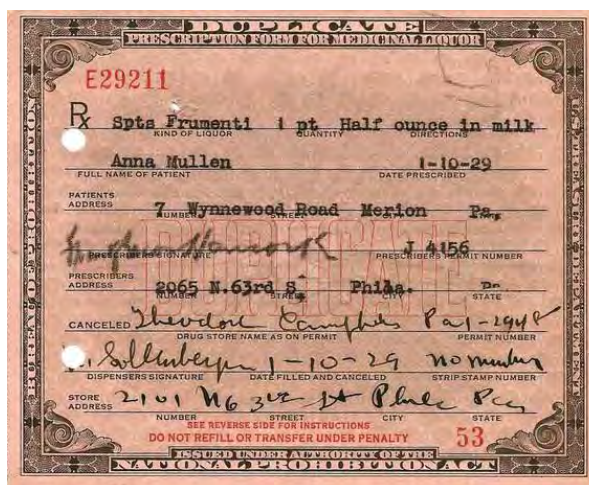 DUPLICATE
PRESCRIPTION FORM FOR MEDICINAL LIQUOR
E29211
Rx Spts Frumenti 1 pt Half ounce in milk
KIND OF LIQUOR QUANTITY DIRECTIONS
Anna Mullen 1-10-29
FULL NAME OF PATIENT DATE PRESCRIBED
PATIENTS
ADDRESS 7 Wynnewood Road Merion Pa.
NUMBER STREET CITY STATE
DUPLICATE
J 4156
PRESCRIBERS SIGNATURE PRESCRIBERS PERMIT NUMBER
PRESCRIBERS
ADDRESS 2065 N.63rd S. Phila. Pa.
STREET CITY STATE
CANCELED Theodore Campbell Pa 1-2948
DRUG STORE NAME AS ON PERMIT PERMIT NUMBER
1-10-29 no number
DISPENSERS SIGNATURE DATE FILLED AND CANCELED STRIP STAMP NUMBER
STORE
ADDRESS 2101 N 63rd St Phila Pa
NUMBER STREET CITY STATE
SEE REVERSE SIDE FOR INSTRUCTIONS
DO NOT REFILL OR TRANSFER UNDER PENALTY 53
ISSUED UNDER AUTHORITY OF THE
NATIONAL PROHIBITION ACT